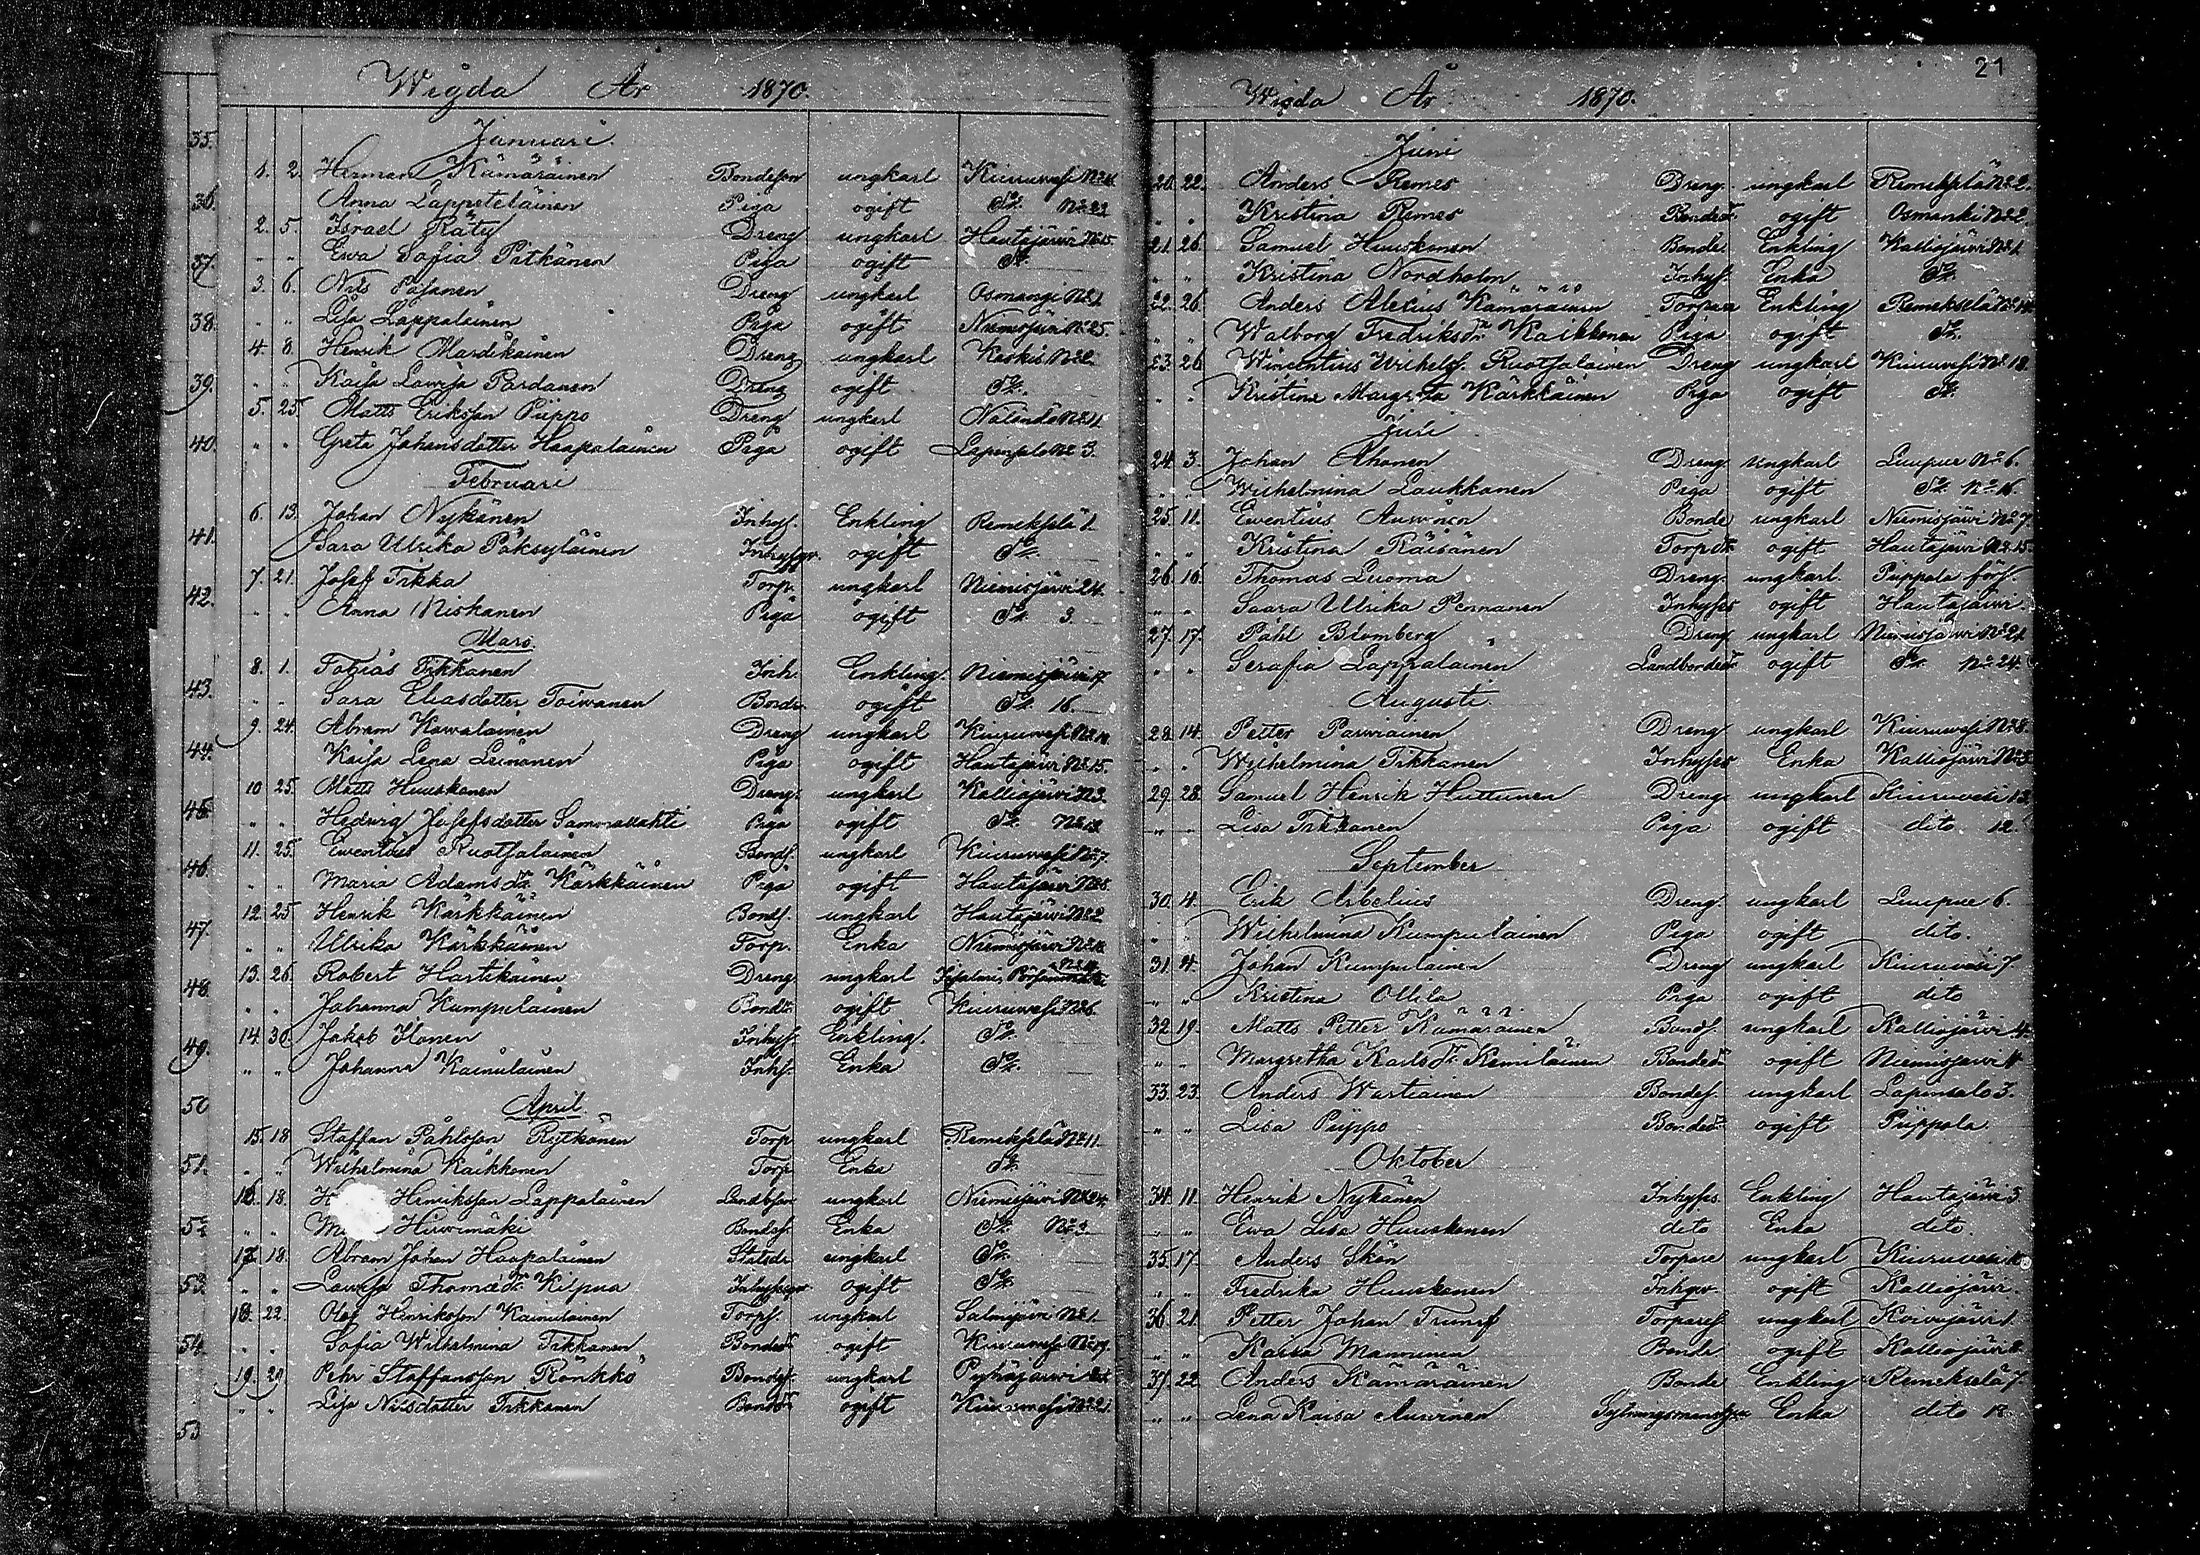 Wigda År 1870.
Januari
1. 2. Herman Kämäräinen Bondeson ungkarl Kiuruwesi
Anna Lappeteläinen Piga ogift Do No 23
2. 5. Israel Räty Dreng ungkarl Hautajärwi No 15.
" " Ewa Sofia Pitkänen Piga ogift Do
3. 6. Nils Pajanen Dreng ungkarl Osmangi No 1.
" " Lisa Lappalainen Piga ogift Niemisjäri No 25.
4. 8. Henrik Mardikainen Dreng ungkarl Koskis No 2.
" " Kaisa Lowisa Pardanen Dreng ogift Do
5. 25. Matts Eriksson Piippo Dreng ungkarl Näländö No 11.
" " Greta Johansdotter Haapalainen Piga ogift Lapinsalo No 3.
Februari
6. 13. Johan Nykänen Inhys. Enkling Remekselä 1.
Sara Ulrika Pöksyläinen ogift Do
7. 21. Josef Tikka Torp. ungkarl Niemisjärwi 24.
" " Anna Niskanen Piga ogift Do 3.
Mars
8. 1. Tobias Tikkanen Inh. Enkling Niemisjärwi 17.
" " Sara Eliasdotter Toiwanen Bonde ogift Do 16.
9. 24. Abram Kowalainen Dreng ungkarl Kiuruwesi
Kaisa Lena Leinonen Piga ogift Hautajärwi No 15.
10 25. Matts Huuskonen Dreng. ungkarl Kalliojärwi No 3.
" " Hedwig Josefsdotter Piga ogift Do
11. 25. Ewentius Ruotsalainen Bonds. ungkarl Kiuruwesi No 7.
" " Maria Adamsdr Kärkkäinen Piga ogift Hautajärwi No 8.
12. 25. Henrik Kärkkäinen Bonds. ungkarl Hautajärwi No 2
" " Ulrika Kärkkäinen Torp. Enka Niemisjärwi
13. 26. Robert Hartikainen Dreng ungkarl
" " Johanna Kumpulainen Bondedr ogift Kiuruwesi No 6.
14. 30. Jakob Ilonen Inhys. Enkling. Do
" " Johanna Kainulainen Inhs. Enka Do
April
15. 18. Staffan Påhlsson Rytkönen Torp ungkarl Remekselä No 11.
" " Wilhelmina Kaikkonen Torp Enka Do
16. 18. Henriksson Lappalainen Landbson ungkarl Niemisjärwi No 24.
" " Hirwimäki Bonds. Enka Do
17. 18. Abram Johan Haapalainen ungkarl Do
" " Lowisa Thomædr Kilpua ogift Do
18. 22. Olof Henriksson Kainulainen Torps. ungkarl Salmijärwi No 1.
" " Sofia Wilhelmina Tikkanen Bondedr ogift Kiuruwesi
19. 29. Pehr Staffansson Rönkkö Bondes. ungkarl Pyhäjärwi
" " Lisa Nilsdotter Tikkanen Bondedr ogift Kiuruwesi No 2
35.
36.
37.
38.
39.
40.
41.
42.
43.
44.
45.
46.
47.
48.
49.
50
51.
52
53.
54.
21
Wigda År 1870.
Juni
20. 22. Anders Remes Dreng ungkarl Remekselä No 2.
" " Kristina Remes Bondedr ogift Osmanki No 2.
21. 26. Samuel Huuskonen Bonde Enkling Kalliojärwi No 1.
" " Kristina Nordholm Inhys. Enka Do
22. 26. Anders Alexius Kämäräinen Torpare Enkling Remekselä
" " Walborg Fredriksdr Kaikkonen Piga ogift Do
23. 26. Wincentius Wilhelms. Ruotsalainen Dreng ungkarl Kiuruwesi No 18.
" " Kristina Margreta Kärkkäinen Piga ogift Do
Juli
24. 3. Johan Ahonen Dreng ungkarl Luupue No 6.
" " Wilhelmina Laukkanen Piga ogift Do No 16.
25. 11. Ewentius Auwinen Bonde ungkarl Niemisjärwi No 7.
" " Kristina Räisänen Torpdr ogift Hautajärwi No 15.
26. 16. Thomas Luoma Dreng. ungkarl. Piippola förs.
" " Saara Ulrika Pennanen Inhyses ogift Hautajärwi
27. 17. Påhl Blomberg Dreng ungkarl Niemisjärwi No 21.
" " Serafia Lappalainen Landbondedr ogift Do No 24.
Augusti.
28. 14. Petter Parwiainen Dreng ungkarl Kiuruwesi No 8.
" " Wilhelmina Tikkanen Inhyses Enka Kalliojärwi No 5.
29. 28. Samuel Henrik Huttunen Dreng ungkarl Kiuruwesi 13.
" " Lisa Tikkanen Piga ogift dito 12.
September
30. 4. Erik Arbelius Dreng. ungkarl Luupue 6.
" " Wilhelmina Kumpulainen Piga ogift dito.
31. 4. Johan Kumpulainen Dreng ungkarl Kiuruvesi 7.
" " Kristina Ollila Piga ogift dito
32. 19. Matts Petter Kämäräinen Bonds. ungkarl Kalliojärwi 4.
" " Margretha Karlsdr Kemiläinen Bondedr ogift Niemisjärwi 11.
33. 23. Anders Wartiainen Bondes. ungkarl Lapinsalo 3.
" " Lisa Piippo Bondedr ogift Piippola.
Oktober
34. 11. Henrik Nykänen Inhyses Enkling Hautajärwi 5.
" " Ewa Lisa Huuskonen dito Enka dito.
35. 17. Anders Skön Torpare ungkarl Kiuruvesi
" " Fredrika Huuskonen ogift Kalliojärwi.
36. 21. Petter Johan Trumf Torpares ungkarl Koiwujärwi 1.
" " Kaisa Manninen Bonde ogift Kalliojärwi
37. 22. Anders Kämäräinen Bonde Enkling Remekselä 7
" " Lena Kaisa Auwinen Enka dito